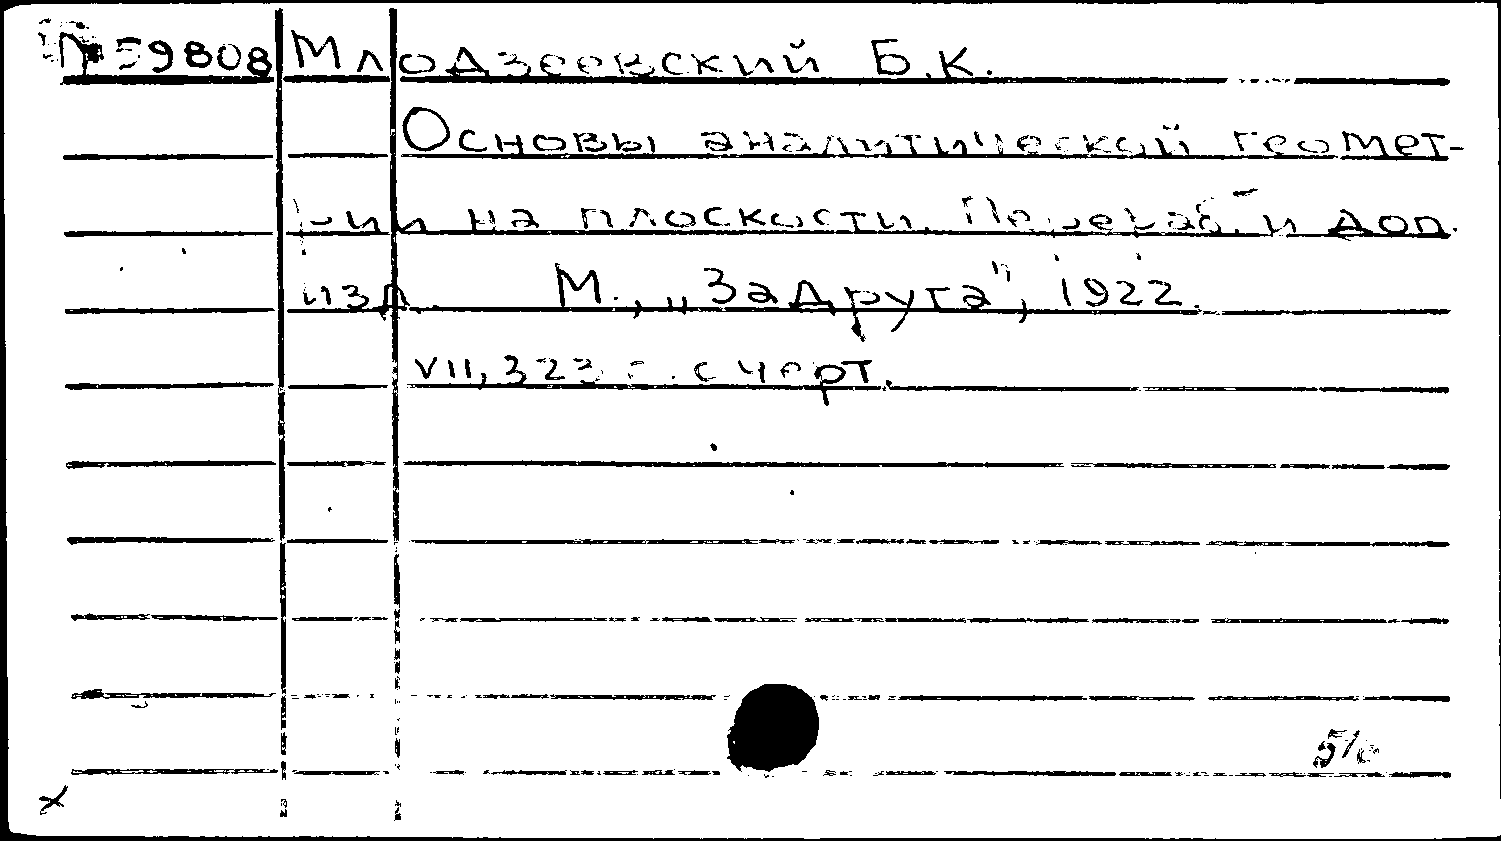 П 59808 Млодзеевский Б.К.
Основы аналитической геомет-
рии на плоскости. Перераб. и доп.
изд. М., „Задруга", 1922.
VII, 323 с. с черт.